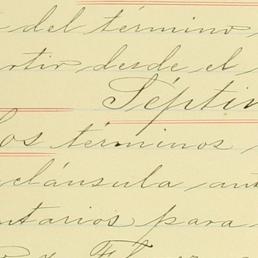 del término
rtir desde el
Séptin
Los términos
cláusula an
ntarios para